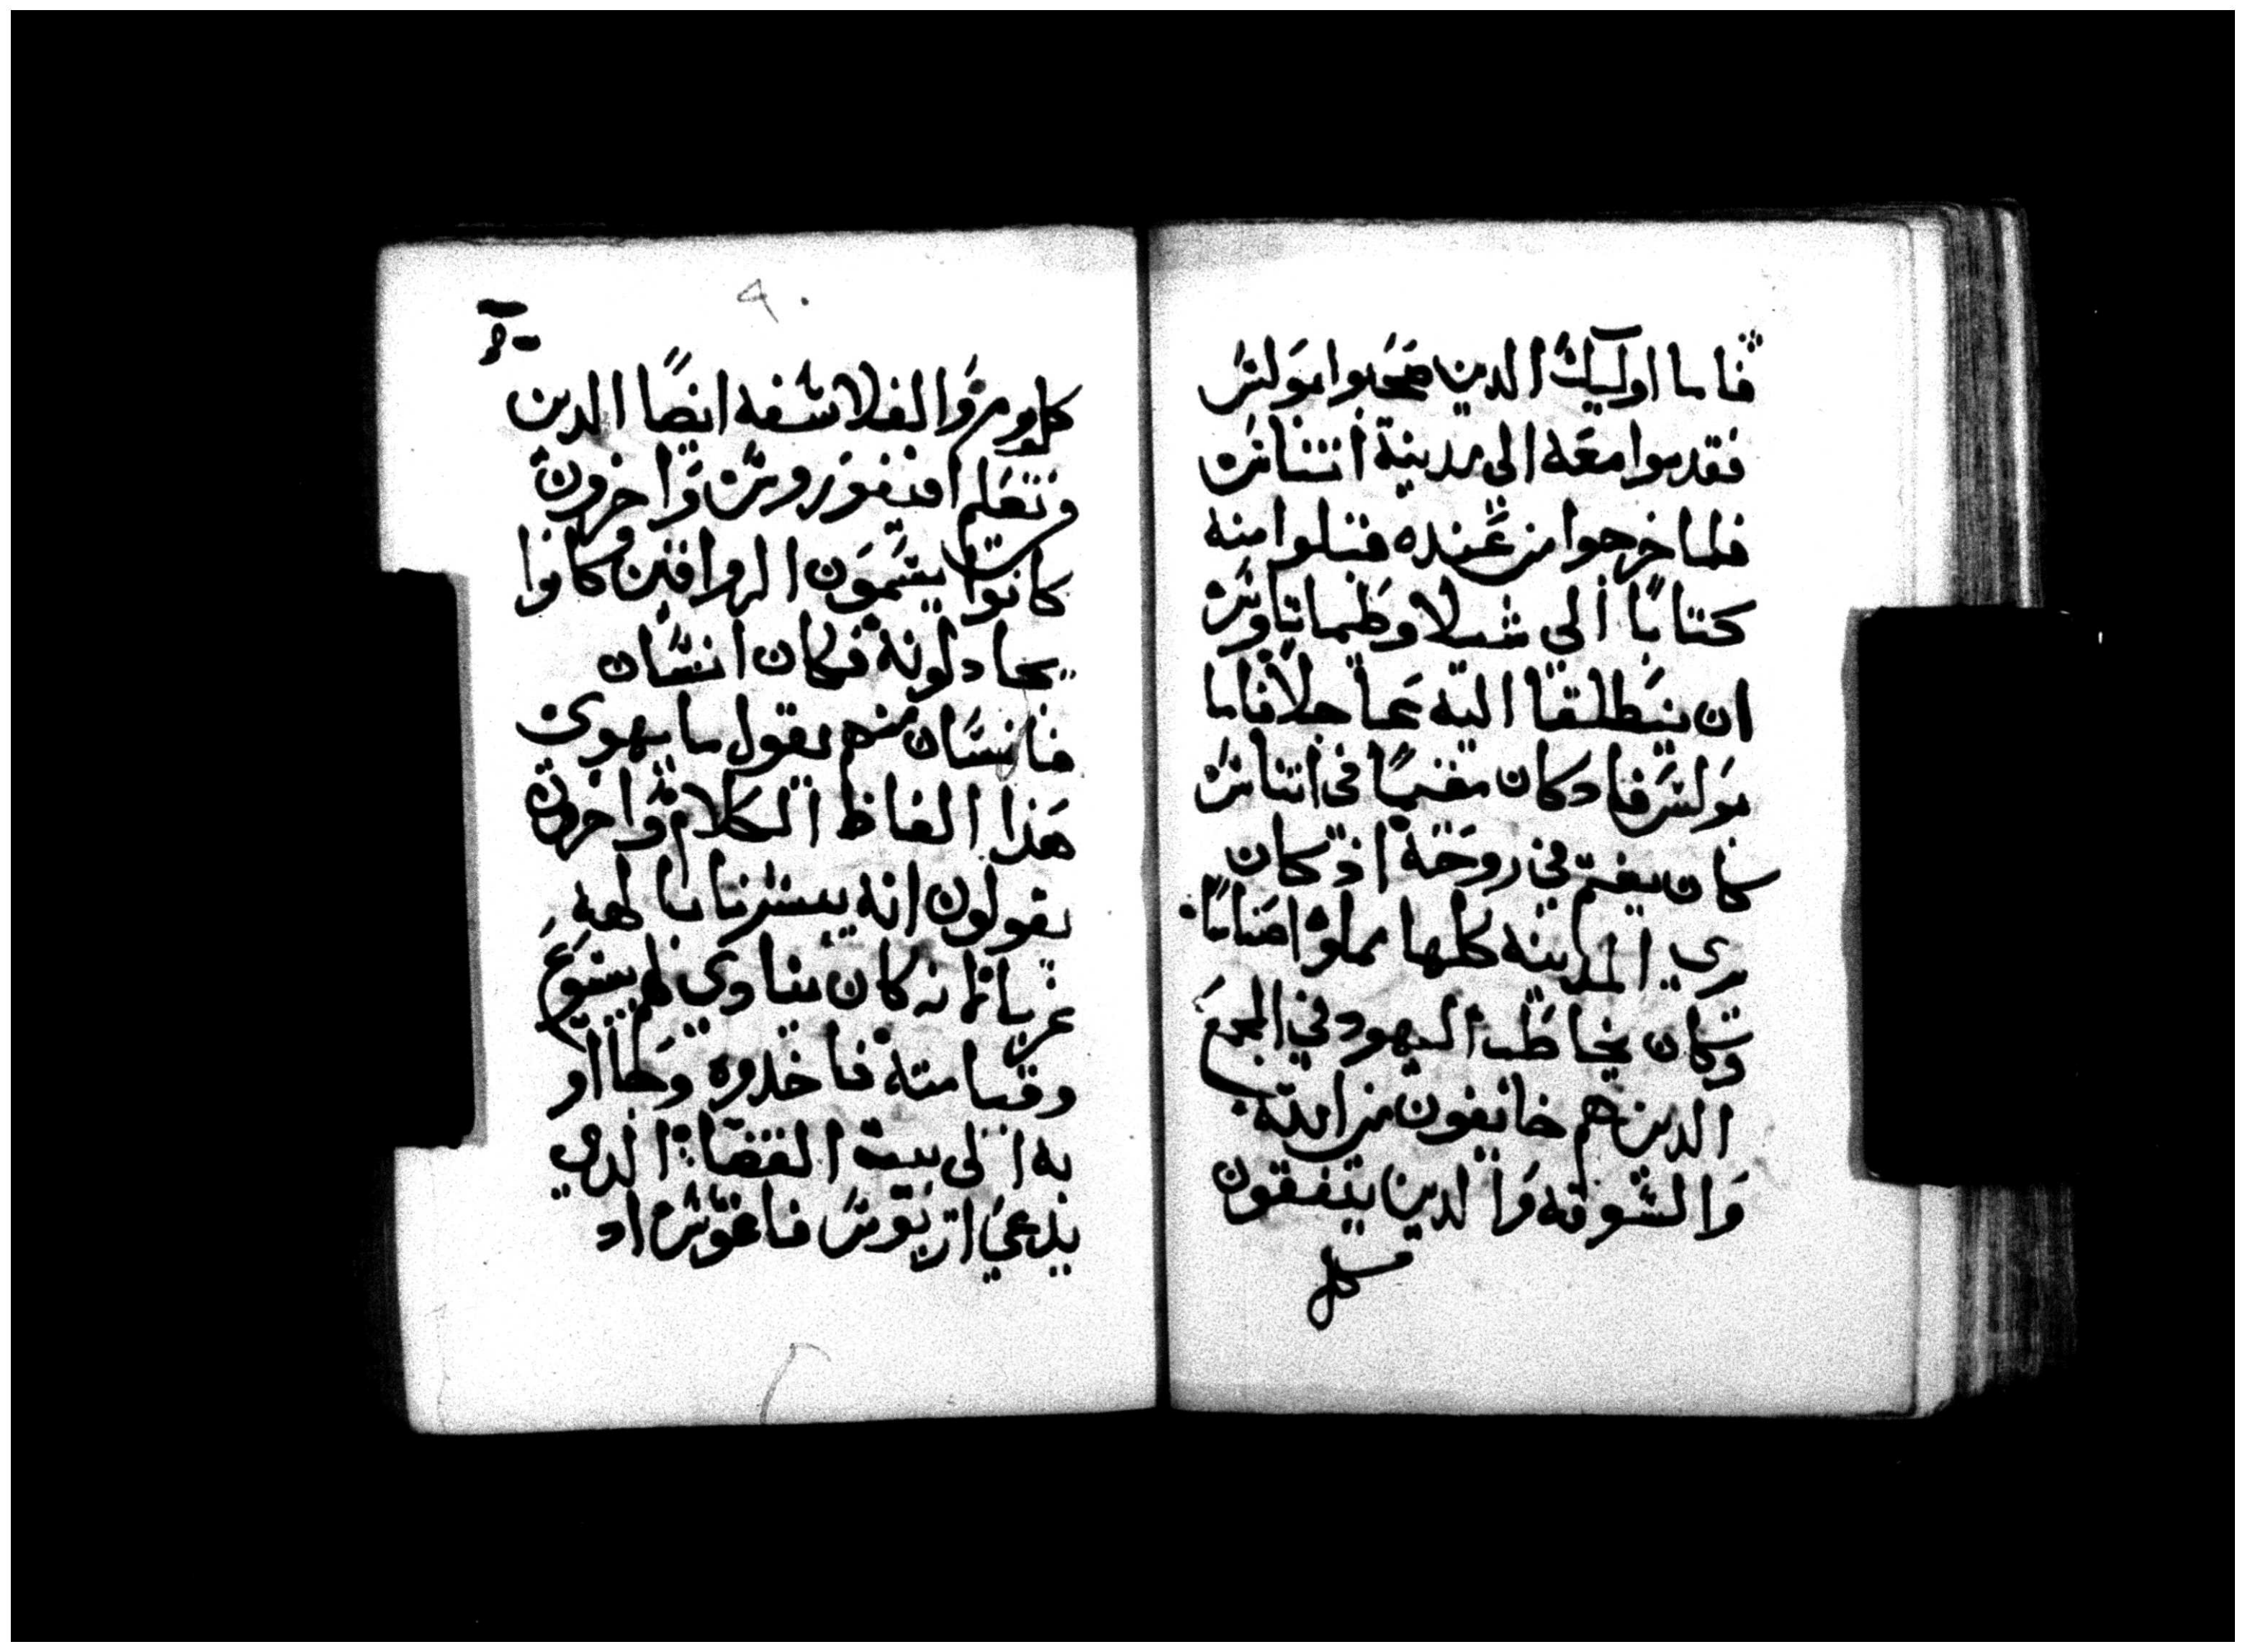 فاما اوليك الدين صحبوا بولس
فقدموا معه الى مدينة اتناس
فلما خرجوا من عنده قبلوا منه
كتابا الى شيلا وطيماتاوس
ان ينطلقا اليه عاجلا فاما
بولس فاد كان مقيما في اتناس
كان يغتم في روحه اذ كان
يرى المدينه كلها مملوه اصناما
وكان يخاطب اليهود في المجمع
الدين هم خايفون من الله
والسوقه والدين يتفقون
كل
٩٠
كل يوم والفلاسفه ايضا الدين
من تعلم افيقوروس واخرون
كانوا يسمون الرواقين وكانوا
يجادلونه فكان انسان
فانسان منهم يقول ما يهوى
هذا الفاظ الكلام واخرون
يقولون انه يبشرنا بالهه
غربا لانه كان ينادي لهم بيسوع
وقيامته فاخدوه وجااو
به الى بيت القضا الدي
يدعي اريوس فاغوس اد